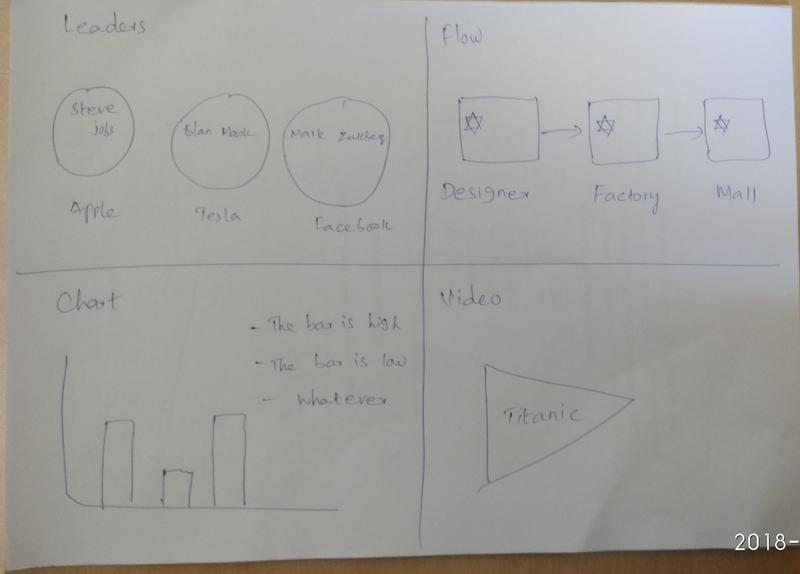 Leaders
Steve
jobs
Elan Mask
Mark Zukbeg
Apple
Tesla
Facebook
Flow
Designer
Factory
Mall
Chart
- The bar is high
- The bar is low
- whatever
Video
Titanic
2018-